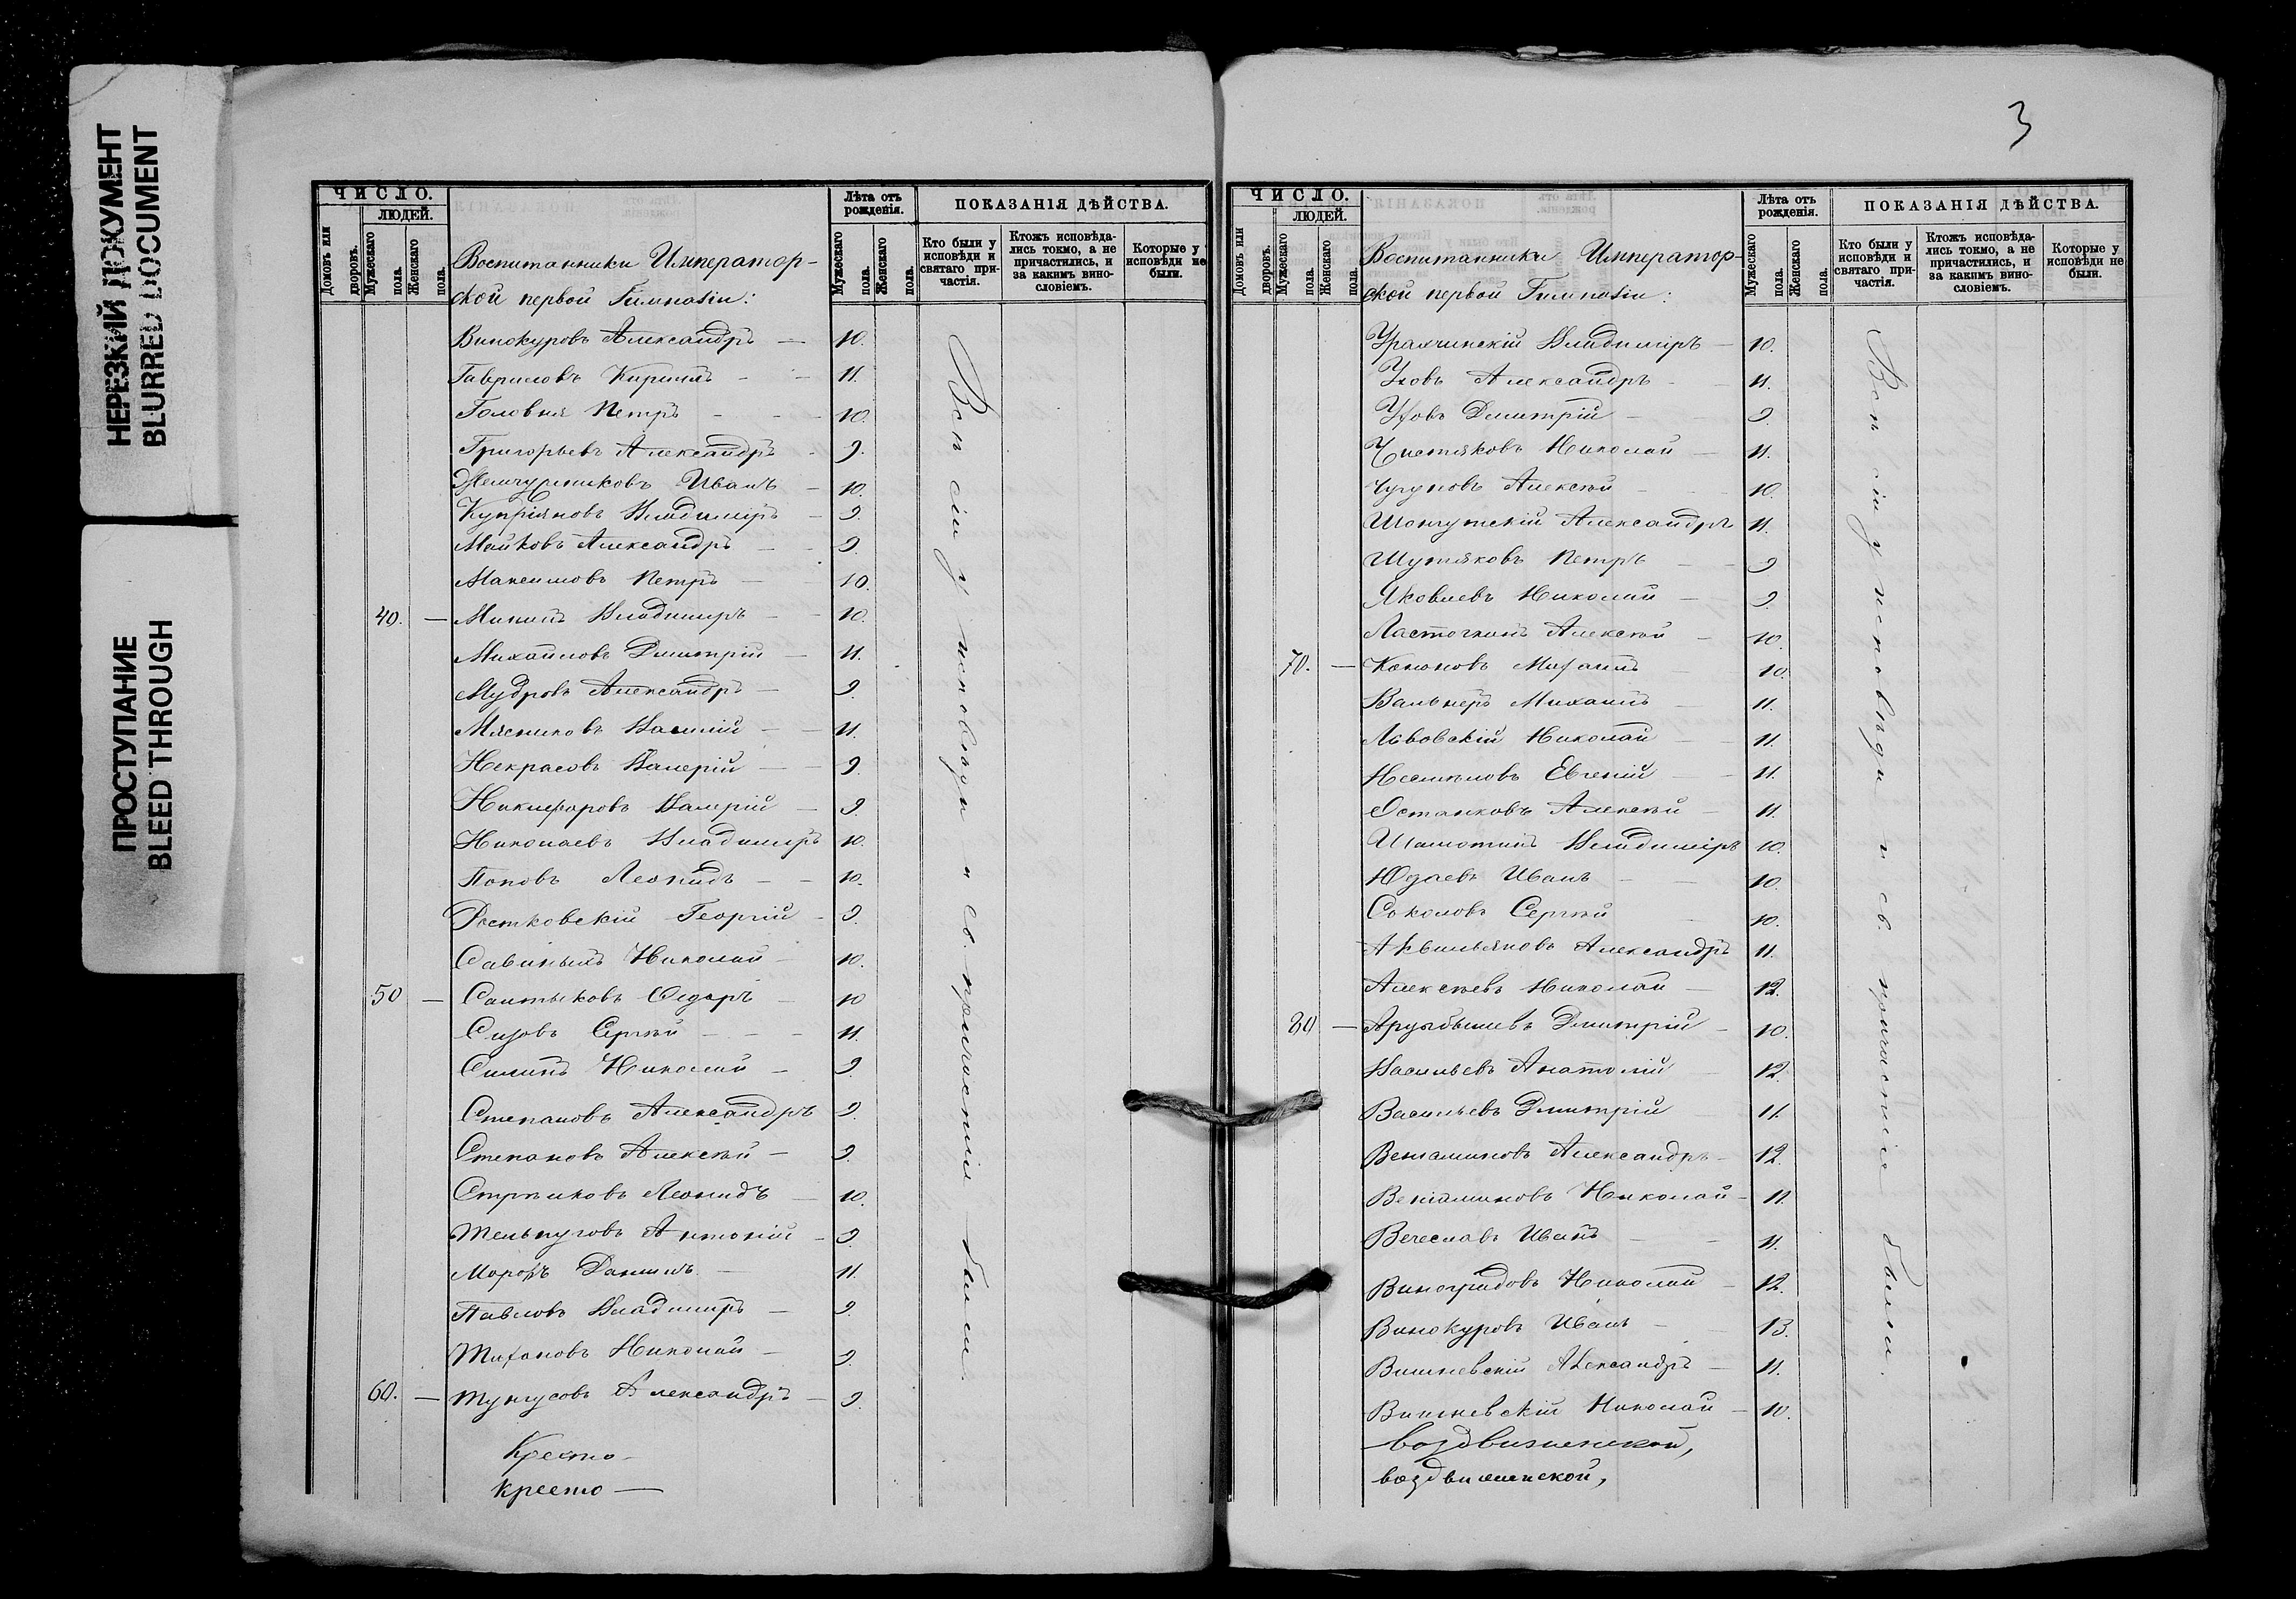 НЕРЕЗКИЙ ДОКУМЕНТ
BLURRED DOCUMENT
ПРОСТУПАНИЕ
BLEED THROUGH
ЧИСЛО.
ЛЮДЕЙ.
Домовъ или дворовъ.
Мужескаго пола.
Женскаго пола.
Воспитанники Император-
ской первой Гимназіи:
Лѣта отъ рожденія.
Мужескаго пола.
Женскаго пола.
ПОКАЗАНІЯ ДѢЙСТВА.
Кто были у исповѣди и святаго при-частія.
Ктожъ исповѣда-лись токмо, а не причастились, и за какимъ вино-словіемъ.
Которые у исповѣди не были.
Винокуровъ Александръ — 10.
Гавриловъ Кириллъ - - 11.
Головня Петръ - - 10.
Григорьевъ Александръ - 9.
Жемчужниковъ Иванъ - 10.
Купріяновъ Владиміръ - 9.
Майковъ Александръ - 9.
Максимовъ Петръ — 10.
40. — Мининъ Владимиръ - 10.
Михайловъ Дмитрій — 11.
Мудровъ Александръ — 9.
Мясниковъ Василій — 11.
Некрасовъ Валерій — 9.
Никифоровъ Валерій — 9.
Николаевъ Владимиръ 10.
Поповъ Леонидъ — 10.
Ростковскій Георгій - 9.
Савиныхъ Николай - 10.
50 — Салтыковъ Ѳедоръ - 10
Сизовъ Сергѣй - - - 11.
Силинъ Николай - 9.
Степановъ Александръ 9.
Степановъ Алексѣй — 9.
Стрѣлковъ Леонидъ — 10.
Тельпуговъ Антоній - 9.
Морозъ Даниилъ — 11.
Павловъ Владимиръ — 9.
Тихановъ Николай — 9.
60. — Тунгусовъ Александръ — 9.
Кресто-
Кресто —
Всѣ сіи у исповѣди и св. причастія были.
3
ЧИСЛО.
ЛЮДЕЙ.
Домовъ или дворовъ.
Мужескаго пола.
Женскаго пола.
Воспитанники Император-
ской первой Гимназіи:
Лѣта отъ рожденія.
Мужескаго пола.
Женскаго пола.
ПОКАЗАНІЯ ДѢЙСТВА.
Кто были у исповѣди и святаго при-частія.
Ктожъ исповѣда-лись токмо, а не причастились, и за какимъ вино-словіемъ.
Которые у исповѣди не были.
Владиміръ — 10.
Александръ - 11.
Дмитрій — 9.
Чистяковъ Николай — 11.
Чугуновъ Алексѣй - 10.
Александръ 11.
Петръ — 9
Яковлевъ Николай — 9.
Ласточкинъ Алексѣй — 10.
70. — Кононовъ Михаилъ 10.
Вальнеръ Михаилъ - 11.
Львовскій Николай — 11.
Несмѣловъ Евгеній — 11.
Останковъ Алексѣй — 11.
Шамотинъ Владиміръ 10.
Юдаевъ Иванъ - 10.
Соколовъ Сергѣй 10.
Александръ 11.
Алексѣевъ Николай — 12.
80 — Дмитрій — 10.
Васильевъ Анатолій 12.
Васильевъ Дмитрій 11.
Веніаминовъ Александръ - 12.
Веніаминовъ Николай - 11.
Вечеславъ Иванъ — 11.
Виноградовъ Николай - 12.
Винокуровъ Иванъ - 13.
Вишневскій Александръ — 11.
Вишневскій Николай — 10.
воздвиженской,
воздвиженской,
Всѣ сіи у исповѣди и св. причастія были.